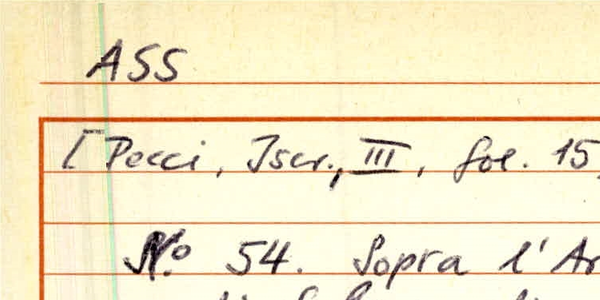 ASS
[Pecci, Iscr., III, fol. 15
No 54. Sopra l'Ar